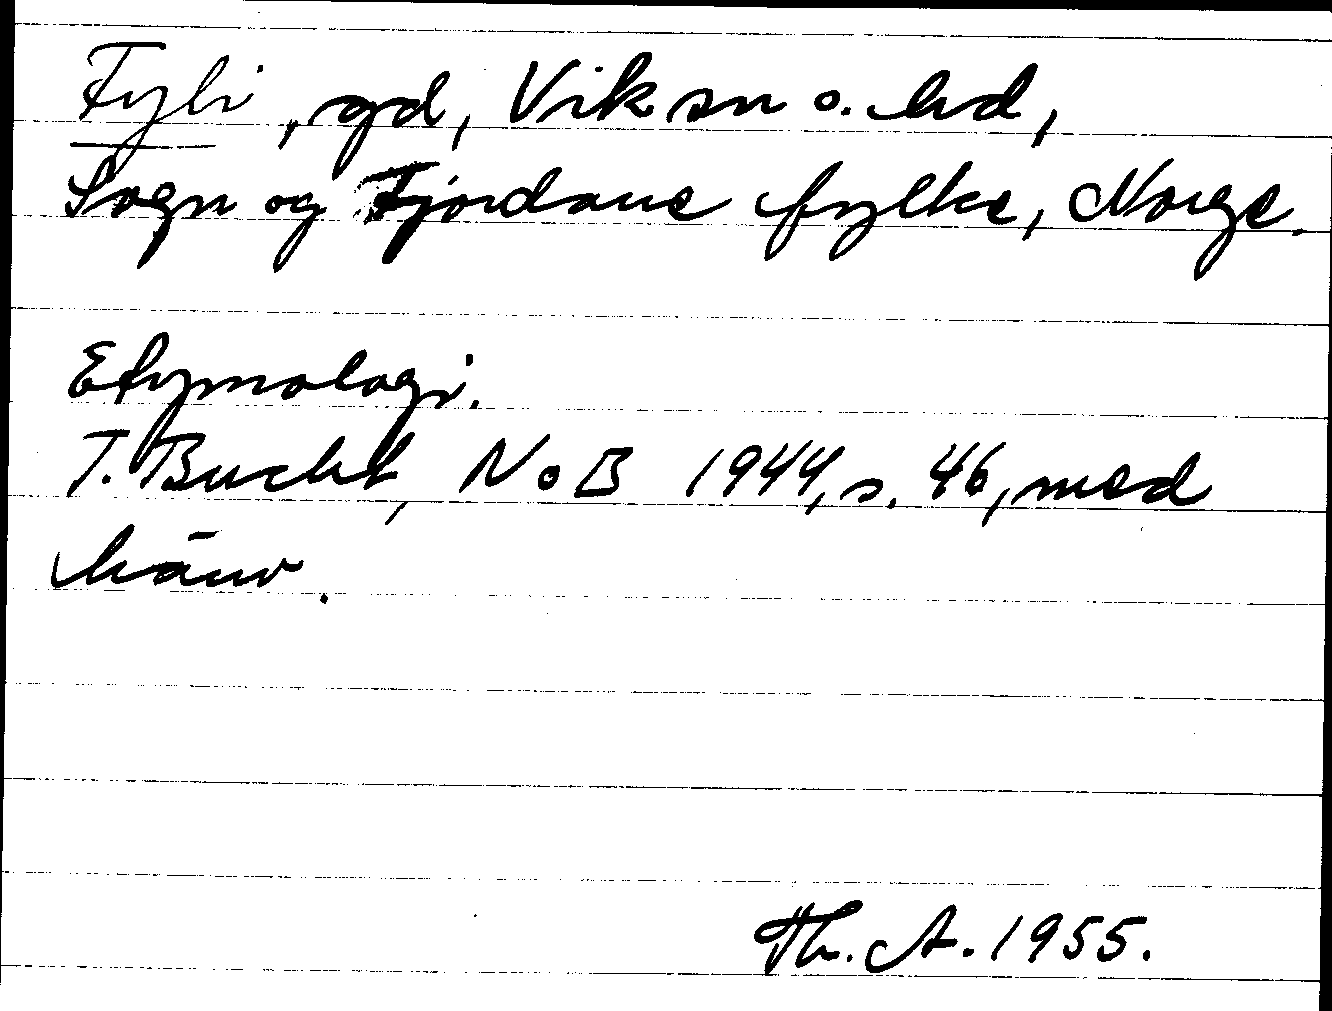 Fyli, gd, Vik sn o. hd,
Sogn og Fjordane fylke, Norge.
Etymologi.
T. Bucht, NoB 1944, s. 46, med
hänv.
Th. A. 1955.